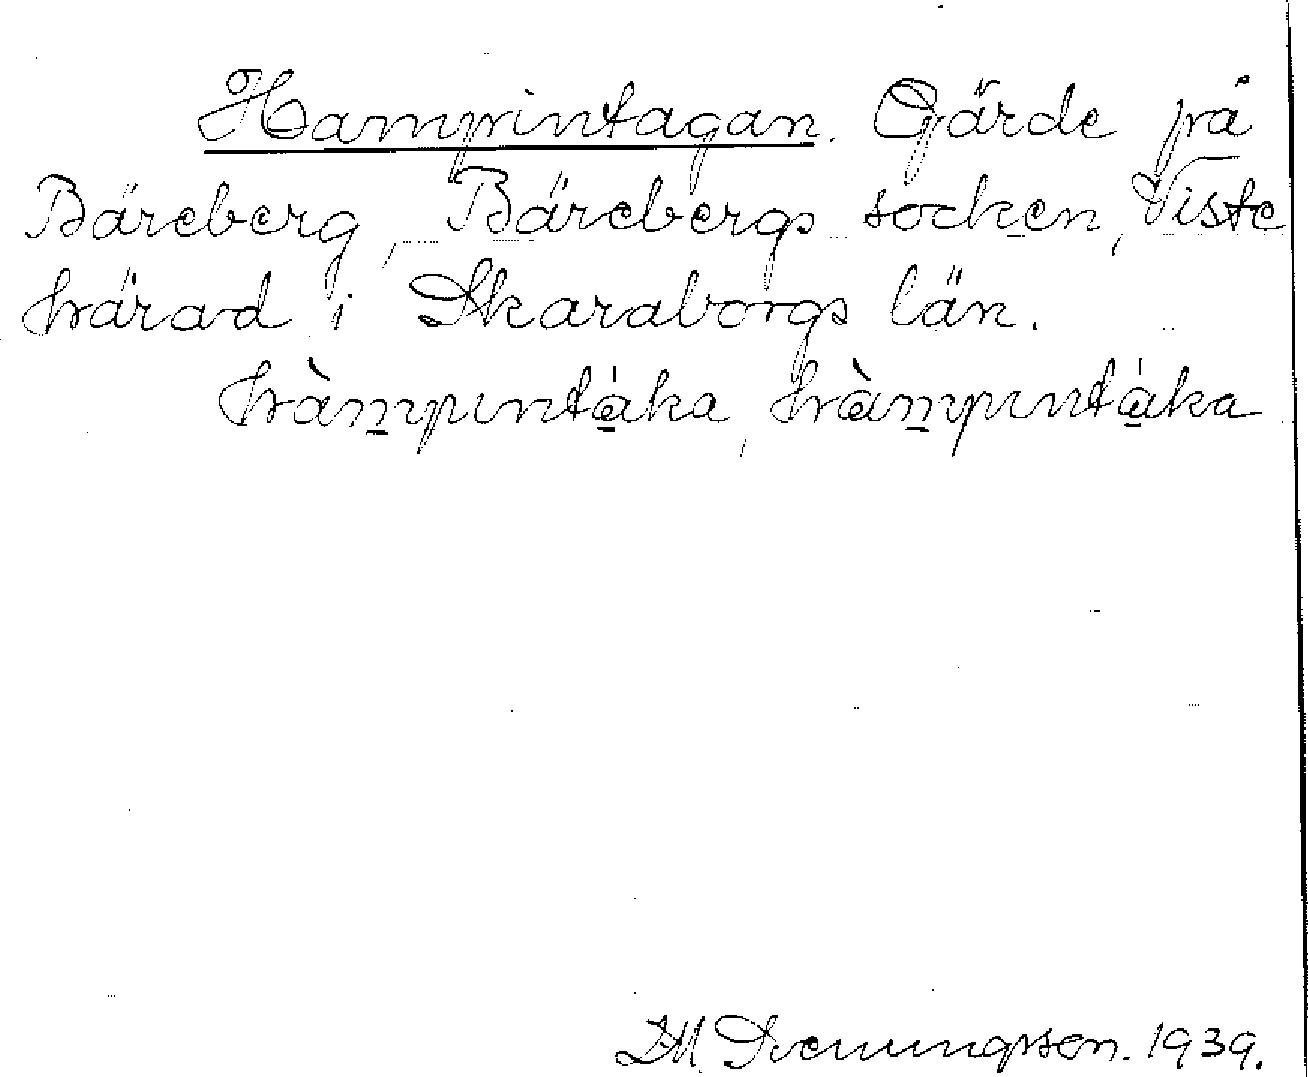 Hampintagan. Gärde på
Bäreberg, Bärebergs socken, Viste
härad i Skaraborgs län.
hàm̲pıntá̲ka, hàm̲pıntá̲ka
DM Svenungsson. 1939.